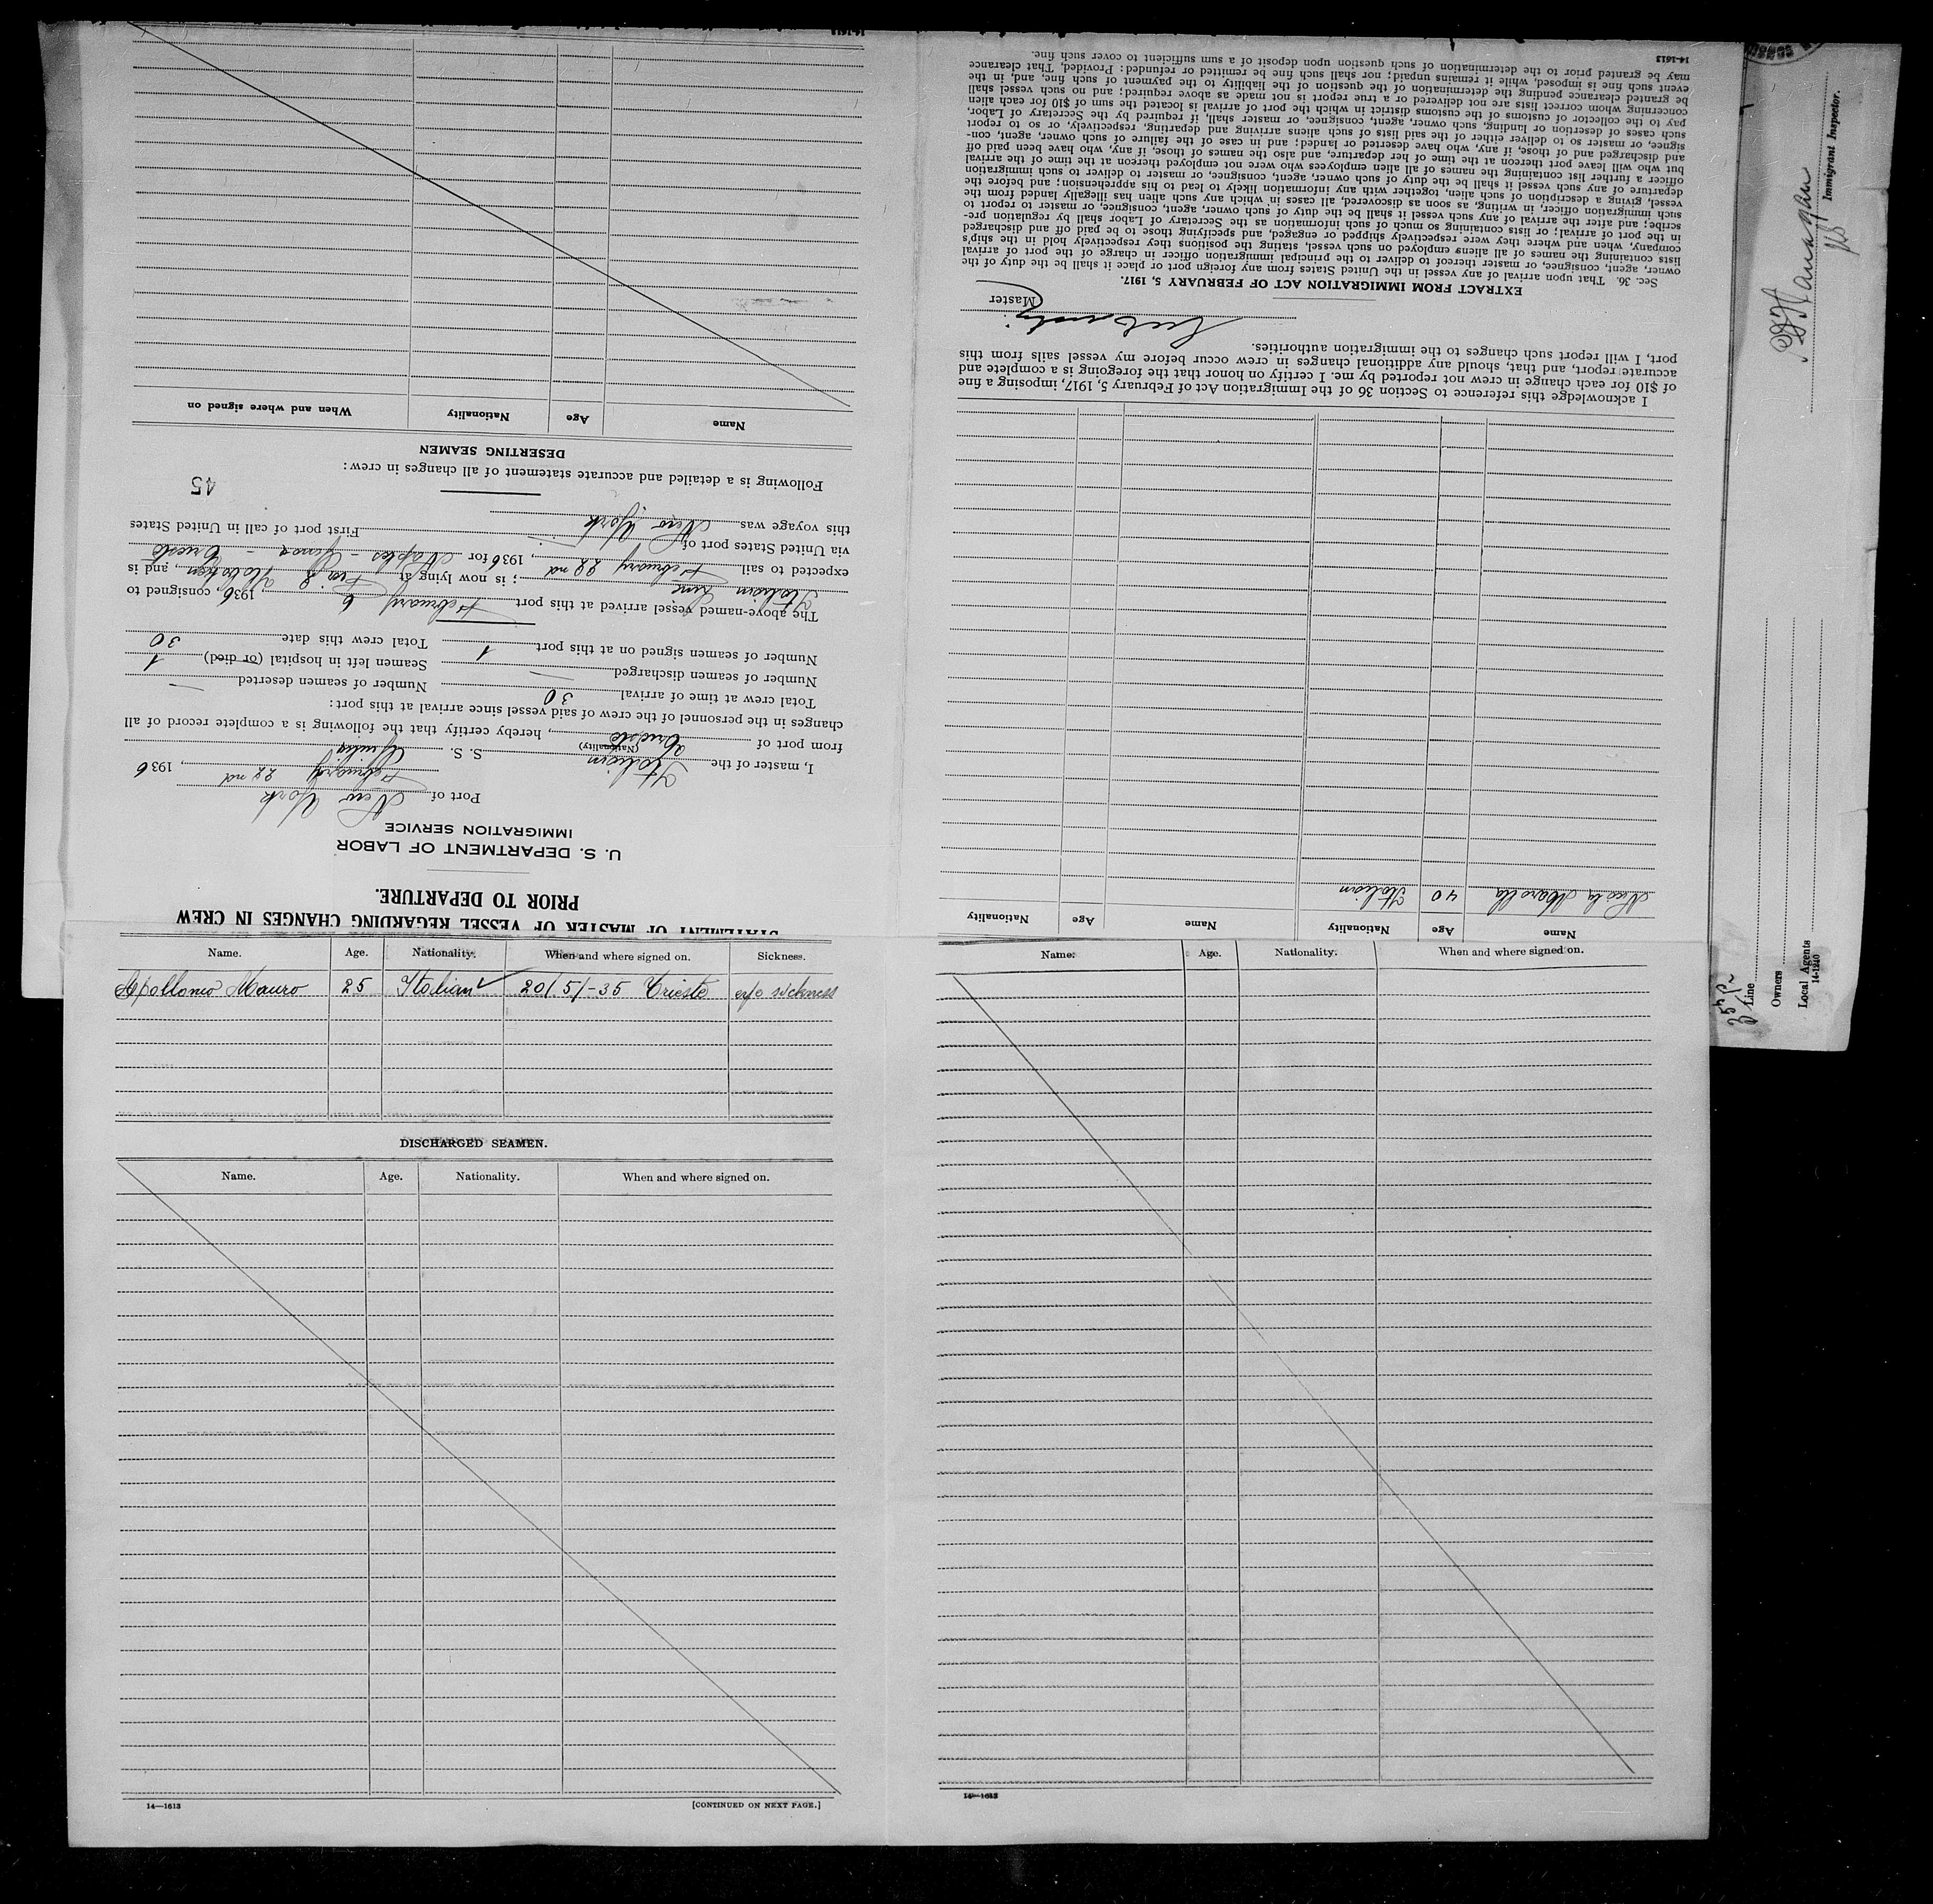 STATEMENT OF MASTER OF VESSEL REGARDING CHANGES IN CREW
PRIOR TO DEPARTURE.
U. S. DEPARTMENT OF LABOR
IMMIGRATION SERVICE
Port of New York
February 22nd, 1936
I, master of the Italian S. S.
(Nationality)
from port of Trieste, hereby certify that the following is a complete record of all
changes in the personnel of the crew of said vessel since arrival at this port:
Total crew at time of arrival 30 Number of seamen deserted —
Number of seamen discharged — Seamen left in hospital (or died) 1
Number of seamen signed on at this port 1 Total crew this date 30
The above-named vessel arrived at this port February 6, 1936, consigned to
Italian Line; is now lying at Hoboken, and is
expected to sail February 22nd, 1936 for Naples - Genoa - Trieste
via United States port of — First port of call in United States
this voyage was New York
45
Following is a detailed and accurate statement of all changes in crew:
DESERTING SEAMEN
Name Age Nationality When and where signed on
14-1613
Name Age Nationality Name Age Nationality
Nicola Marella 40 Italian
I acknowledge this reference to Section 36 of the Immigration Act of February 5, 1917, imposing a fine
of $10 for each change in crew not reported by me. I certify on honor that the foregoing is a complete and
accurate report, and that, should any additional changes in crew occur before my vessel sails from this
port, I will report such changes to the immigration authorities.
Master
EXTRACT FROM IMMIGRATION ACT OF FEBRUARY 5, 1917.
Sec. 36. That upon arrival of any vessel in the United States from any foreign port or place it shall be the duty of the
owner, agent, consignee, or master thereof to deliver to the principal immigration officer in charge of the port of arrival
lists containing the names of all aliens employed on such vessel, stating the positions they respectively hold in the ship's
company, when and where they were respectively shipped or engaged, and specifying those to be paid off and discharged
in the port of arrival; or lists containing so much of such information as the Secretary of Labor shall by regulation pre-
scribe; and after the arrival of any such vessel it shall be the duty of such owner, agent, consignee, or master to report to
such immigration officer, in writing, as soon as discovered, all cases in which any such alien has illegally landed from the
vessel, giving a description of such alien, together with any information likely to lead to his apprehension; and before the
departure of any such vessel it shall be the duty of such owner, agent, consignee, or master to deliver to such immigration
officer a further list containing the names of all alien employees who were not employed thereon at the time of the arrival
but who will leave port thereon at the time of her departure, and also the names of those, if any, who have been paid off
and discharged and of those, if any, who have deserted or landed; and in case of the failure of such owner, agent, con-
signee, or master so to deliver either of the said lists of such aliens arriving and departing, respectively, or so to report
such cases of desertion or landing, such owner, agent, consignee, or master shall, if required by the Secretary of Labor,
pay to the collector of customs of the customs district in which the port of arrival is located the sum of $10 for each alien
concerning whom correct lists are not delivered or a true report is not made as above required; and no such vessel shall
be granted clearance pending the determination of the question of the liability to the payment of such fine, and, in the
event such fine is imposed, while it remains unpaid; nor shall such fine be remitted or refunded: Provided, That clearance
may be granted prior to the determination of such question upon deposit of a sum sufficient to cover such fine.
14-1613
Immigrant Inspector.
Line
Owners
Local Agents
14-1240
Name. Age. Nationality. When and where signed on. Sickness.
Apollonio Mauro 25 Italian 20/.5/-35 Trieste a/c sickness
DISCHARGED SEAMEN.
Name. Age. Nationality. When and where signed on.
14—1613 [CONTINUED ON NEXT PAGE.]
Name. Age. Nationality. When and where signed on.
14—1613